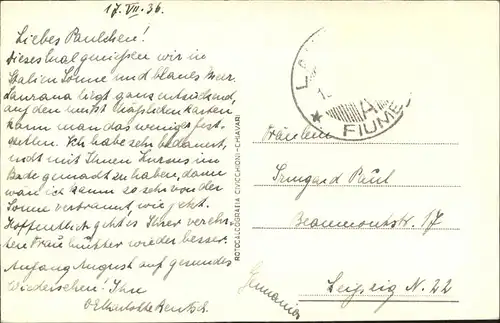 17. VII. 36.
Liebes Paulchen!
Dieses Mal genießen wir in
Italien Sonne und blaues Meer.
Laurana liegt ganz entzückend,
auf den meist hässlichen Karten
kann man das weniger fest-
stellen. Ich habe sehr bedauert,
nicht mit Ihnen Kursus im
Bade gemacht zu haben, dann
wär ich kaum so sehr von der
Sonne verbrannt, wie jetzt.
Hoffentlich geht es Ihrer verehr-
ten Frau Mutter wieder besser.
Anfang August auf gesundes
Wiedersehen! Ihre
Charlotte
ROTOCALCOGRAFIA CIVICCHIONI - CHIAVARI
LA
FIUME
Fräulein
Irmgard Paul
Beaumontstr. 17
Leipzig N. 22
Germania